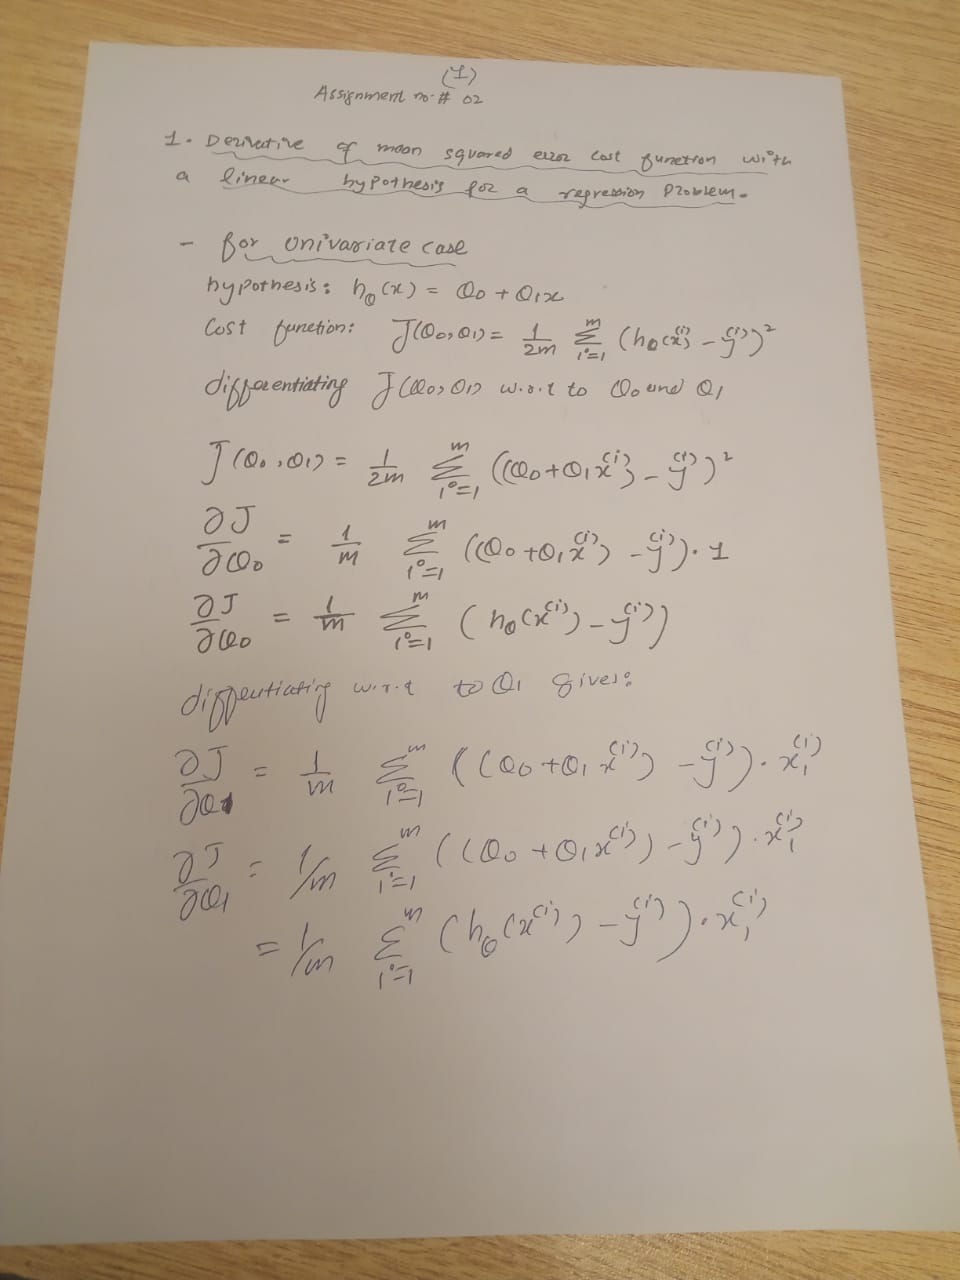 (1)
Assignment no. # 02
1. Derivative of mean squared error cost function with
a linear hypothesis for a regression problem.
- for univariate case
hypothesis: hθ(x) = θ0 + θ1x
Cost function: J(θ0, θ1) = 1/2m Σ_{i=1}^{m} (hθ(x^(i)) - y^(i))²
differentiating J(θ0, θ1) w.r.t to θ0 and θ1
J(θ0, θ1) = 1/2m Σ_{i=1}^{m} ((θ0 + θ1x^(i)) - y^(i))²
∂J/∂θ0 = 1/m Σ_{i=1}^{m} ((θ0 + θ1x^(i)) - y^(i)) . 1
∂J/∂θ0 = 1/m Σ_{i=1}^{m} (hθ(x^(i)) - y^(i))
diffentiating w.r.t to θ1 gives:
∂J/∂θ1 = 1/m Σ_{i=1}^{m} ((θ0 + θ1x^(i)) - y^(i)) . x1^(i)
∂J/∂θ1 = 1/m Σ_{i=1}^{m} ((θ0 + θ1x^(i)) - y^(i)) . x1^(i)
= 1/m Σ_{i=1}^{m} (hθ(x^(i)) - y^(i)) . x1^(i)